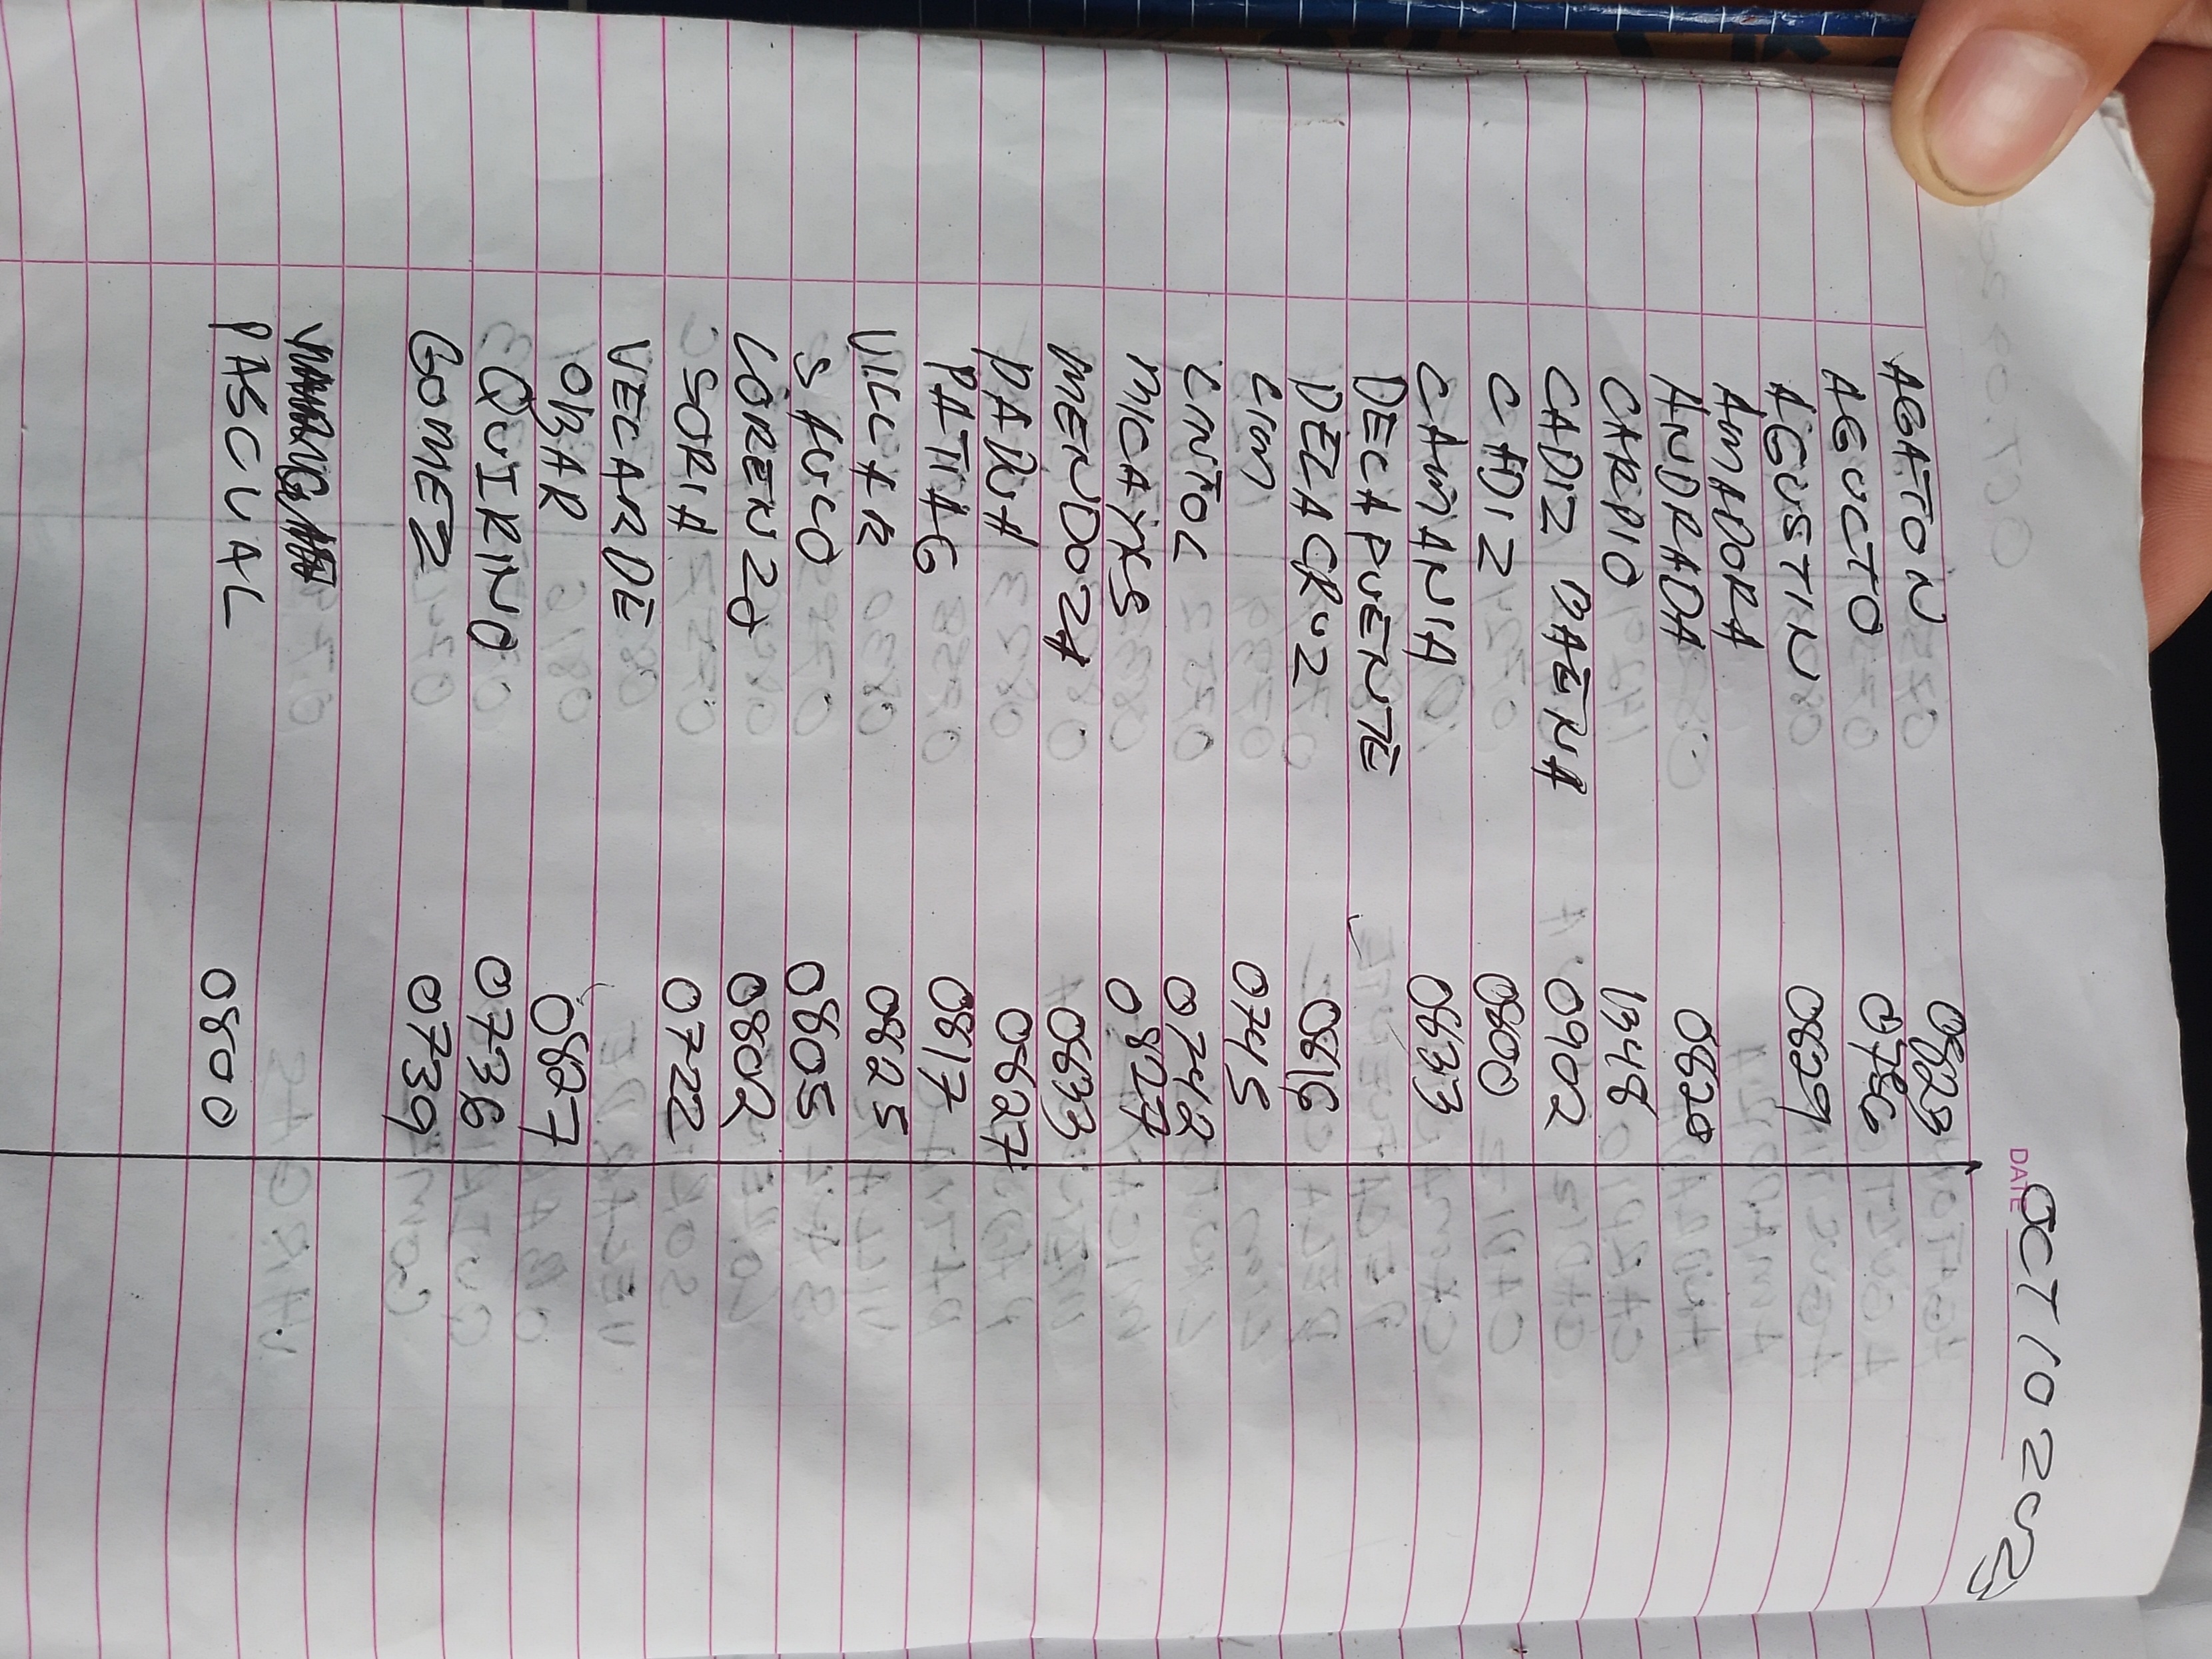 DATE OCT 10 2023
AGATON 0823
AGUCTO 0756
AGUSTIN 0829
AMADORA
ANDRADA 0820
CARPIO 1348
CADIZ DAENA 0902
CADIZ 0800
CAMANIA 0833
DECAPUENTE
DELACRUZ 0816
LIM 0745
LNTOL 0742
MICAYKS 0827
MENDOZA 0833
PADUA 0827
PATIAG 0817
VILLAR 0825
SAULO 0805
LORENZO 0802
SORIA 0722
VELARDE
OBAR 0827
QUIRINO 0736
GOMEZ 0739
PASCUAL 0800